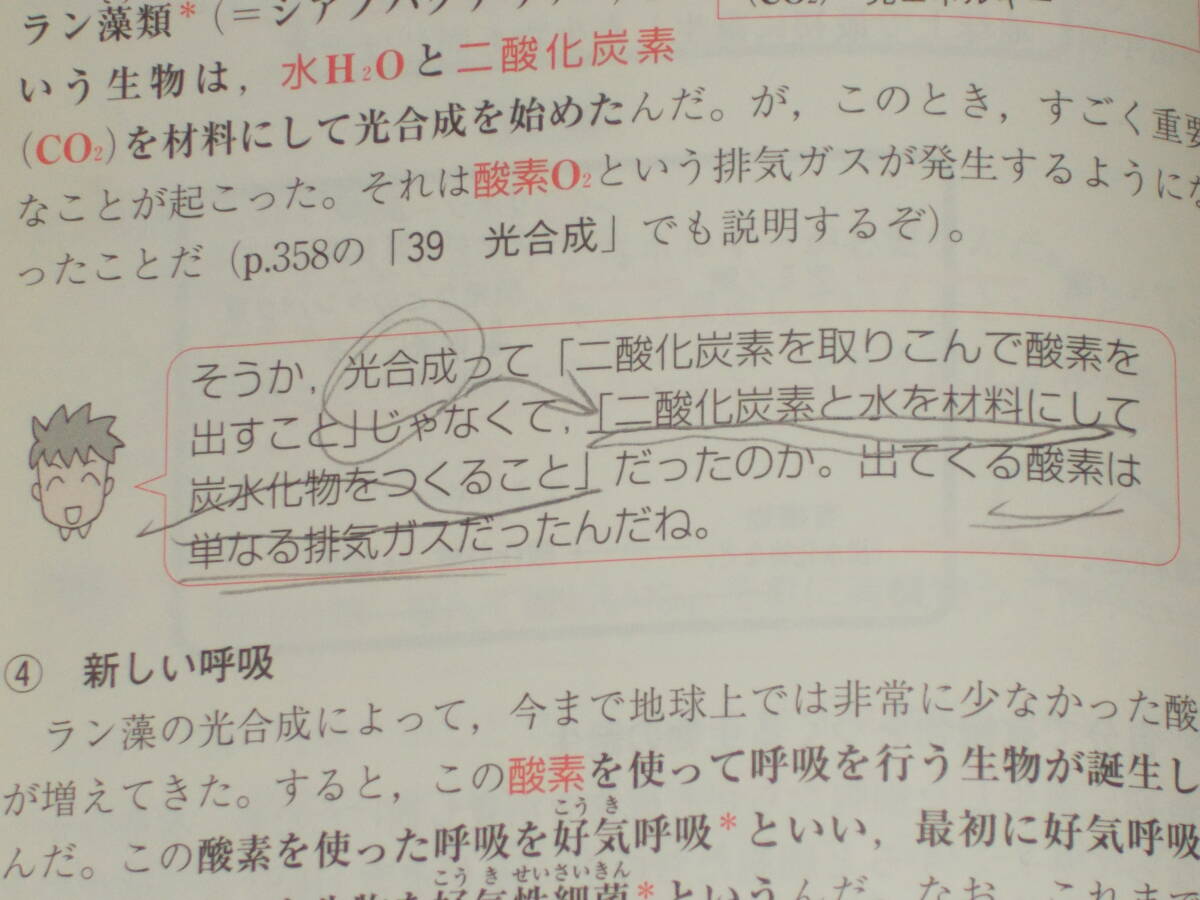 ラン藻類*
いう生物は，水H₂Oと二酸化炭素
(CO₂)を材料にして光合成を始めたんだ。が，このとき，すごく重要
なことが起こった。それは酸素O₂という排気ガスが発生するようにな
ったことだ (p.358の「39　光合成」でも説明するぞ)。
そうか，光合成って「二酸化炭素を取りこんで酸素を
出すこと」じゃなくて，「二酸化炭素と水を材料にして
炭水化物をつくること」だったのか。出てくる酸素は
単なる排気ガスだったんだね。
④　新しい呼吸
ラン藻の光合成によって，今まで地球上では非常に少なかった酸
が増えてきた。すると，この酸素を使って呼吸を行う生物が誕生し
こう き
んだ。この酸素を使った呼吸を好気呼吸*といい，最初に好気呼吸
こう き せいさいきん
好気性細菌*というんだ。なお，これまで